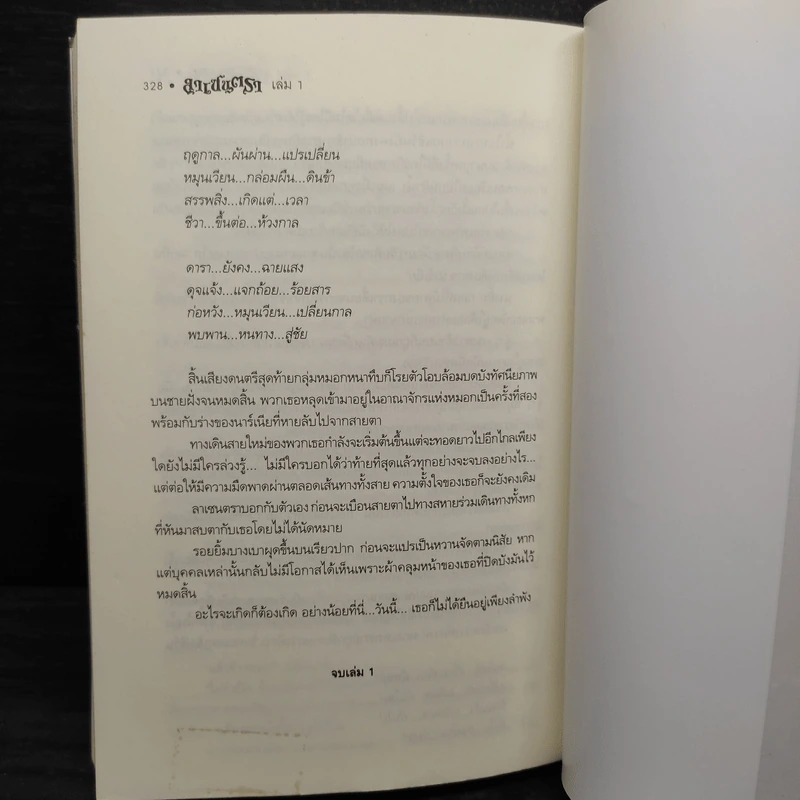 328 • ลาเซนตรา เล่ม 1
ฤดูกาล...ผันผ่าน...แปรเปลี่ยน
หมุนเวียน...กล่อมผืน...ดินข้า
สรรพสิ่ง...เกิดแต่...เวลา
ชีวา...ขึ้นต่อ...ห้วงกาล
ดารา...ยังคง...ฉายแสง
ดุจแจ้ง...แจกถ้อย...ร้อยสาร
ก่อหวัง...หมุนเวียน...เปลี่ยนกาล
พบพาน...หนทาง...สู่ชัย
สิ้นเสียงดนตรีสุดท้ายกลุ่มหมอกหนาทึบก็โรยตัวโอบล้อมบดบังทัศนียภาพ
บนชายฝั่งจนหมดสิ้น พวกเธอหลุดเข้ามาอยู่ในอาณาจักรแห่งหมอกเป็นครั้งที่สอง
พร้อมกับร่างของนาร์เนียที่หายลับไปจากสายตา
ทางเดินสายใหม่ของพวกเธอกำลังจะเริ่มต้นขึ้นแต่จะทอดยาวไปอีกไกลเพียง
ใดยังไม่มีใครล่วงรู้... ไม่มีใครบอกได้ว่าท้ายที่สุดแล้วทุกอย่างจะจบลงอย่างไร...
แต่ต่อให้มีความมืดพาดผ่านตลอดเส้นทางทั้งสาย ความตั้งใจของเธอก็จะยังคงเดิม
ลาเซนตราบอกกับตัวเอง ก่อนจะเบือนสายตาไปทางสหายร่วมเดินทางทั้งหก
ที่หันมาสบตากับเธอโดยไม่ได้นัดหมาย
รอยยิ้มบางเบาผุดขึ้นบนเรียวปาก ก่อนจะแปรเป็นหวานจัดตามนิสัย หาก
แต่บุคคลเหล่านั้นกลับไม่มีโอกาสได้เห็นเพราะผ้าคลุมหน้าของเธอที่ปิดบังมันไว้
หมดสิ้น
อะไรจะเกิดก็ต้องเกิด อย่างน้อยที่นี่...วันนี้... เธอก็ไม่ได้ยืนอยู่เพียงลำพัง
จบเล่ม 1